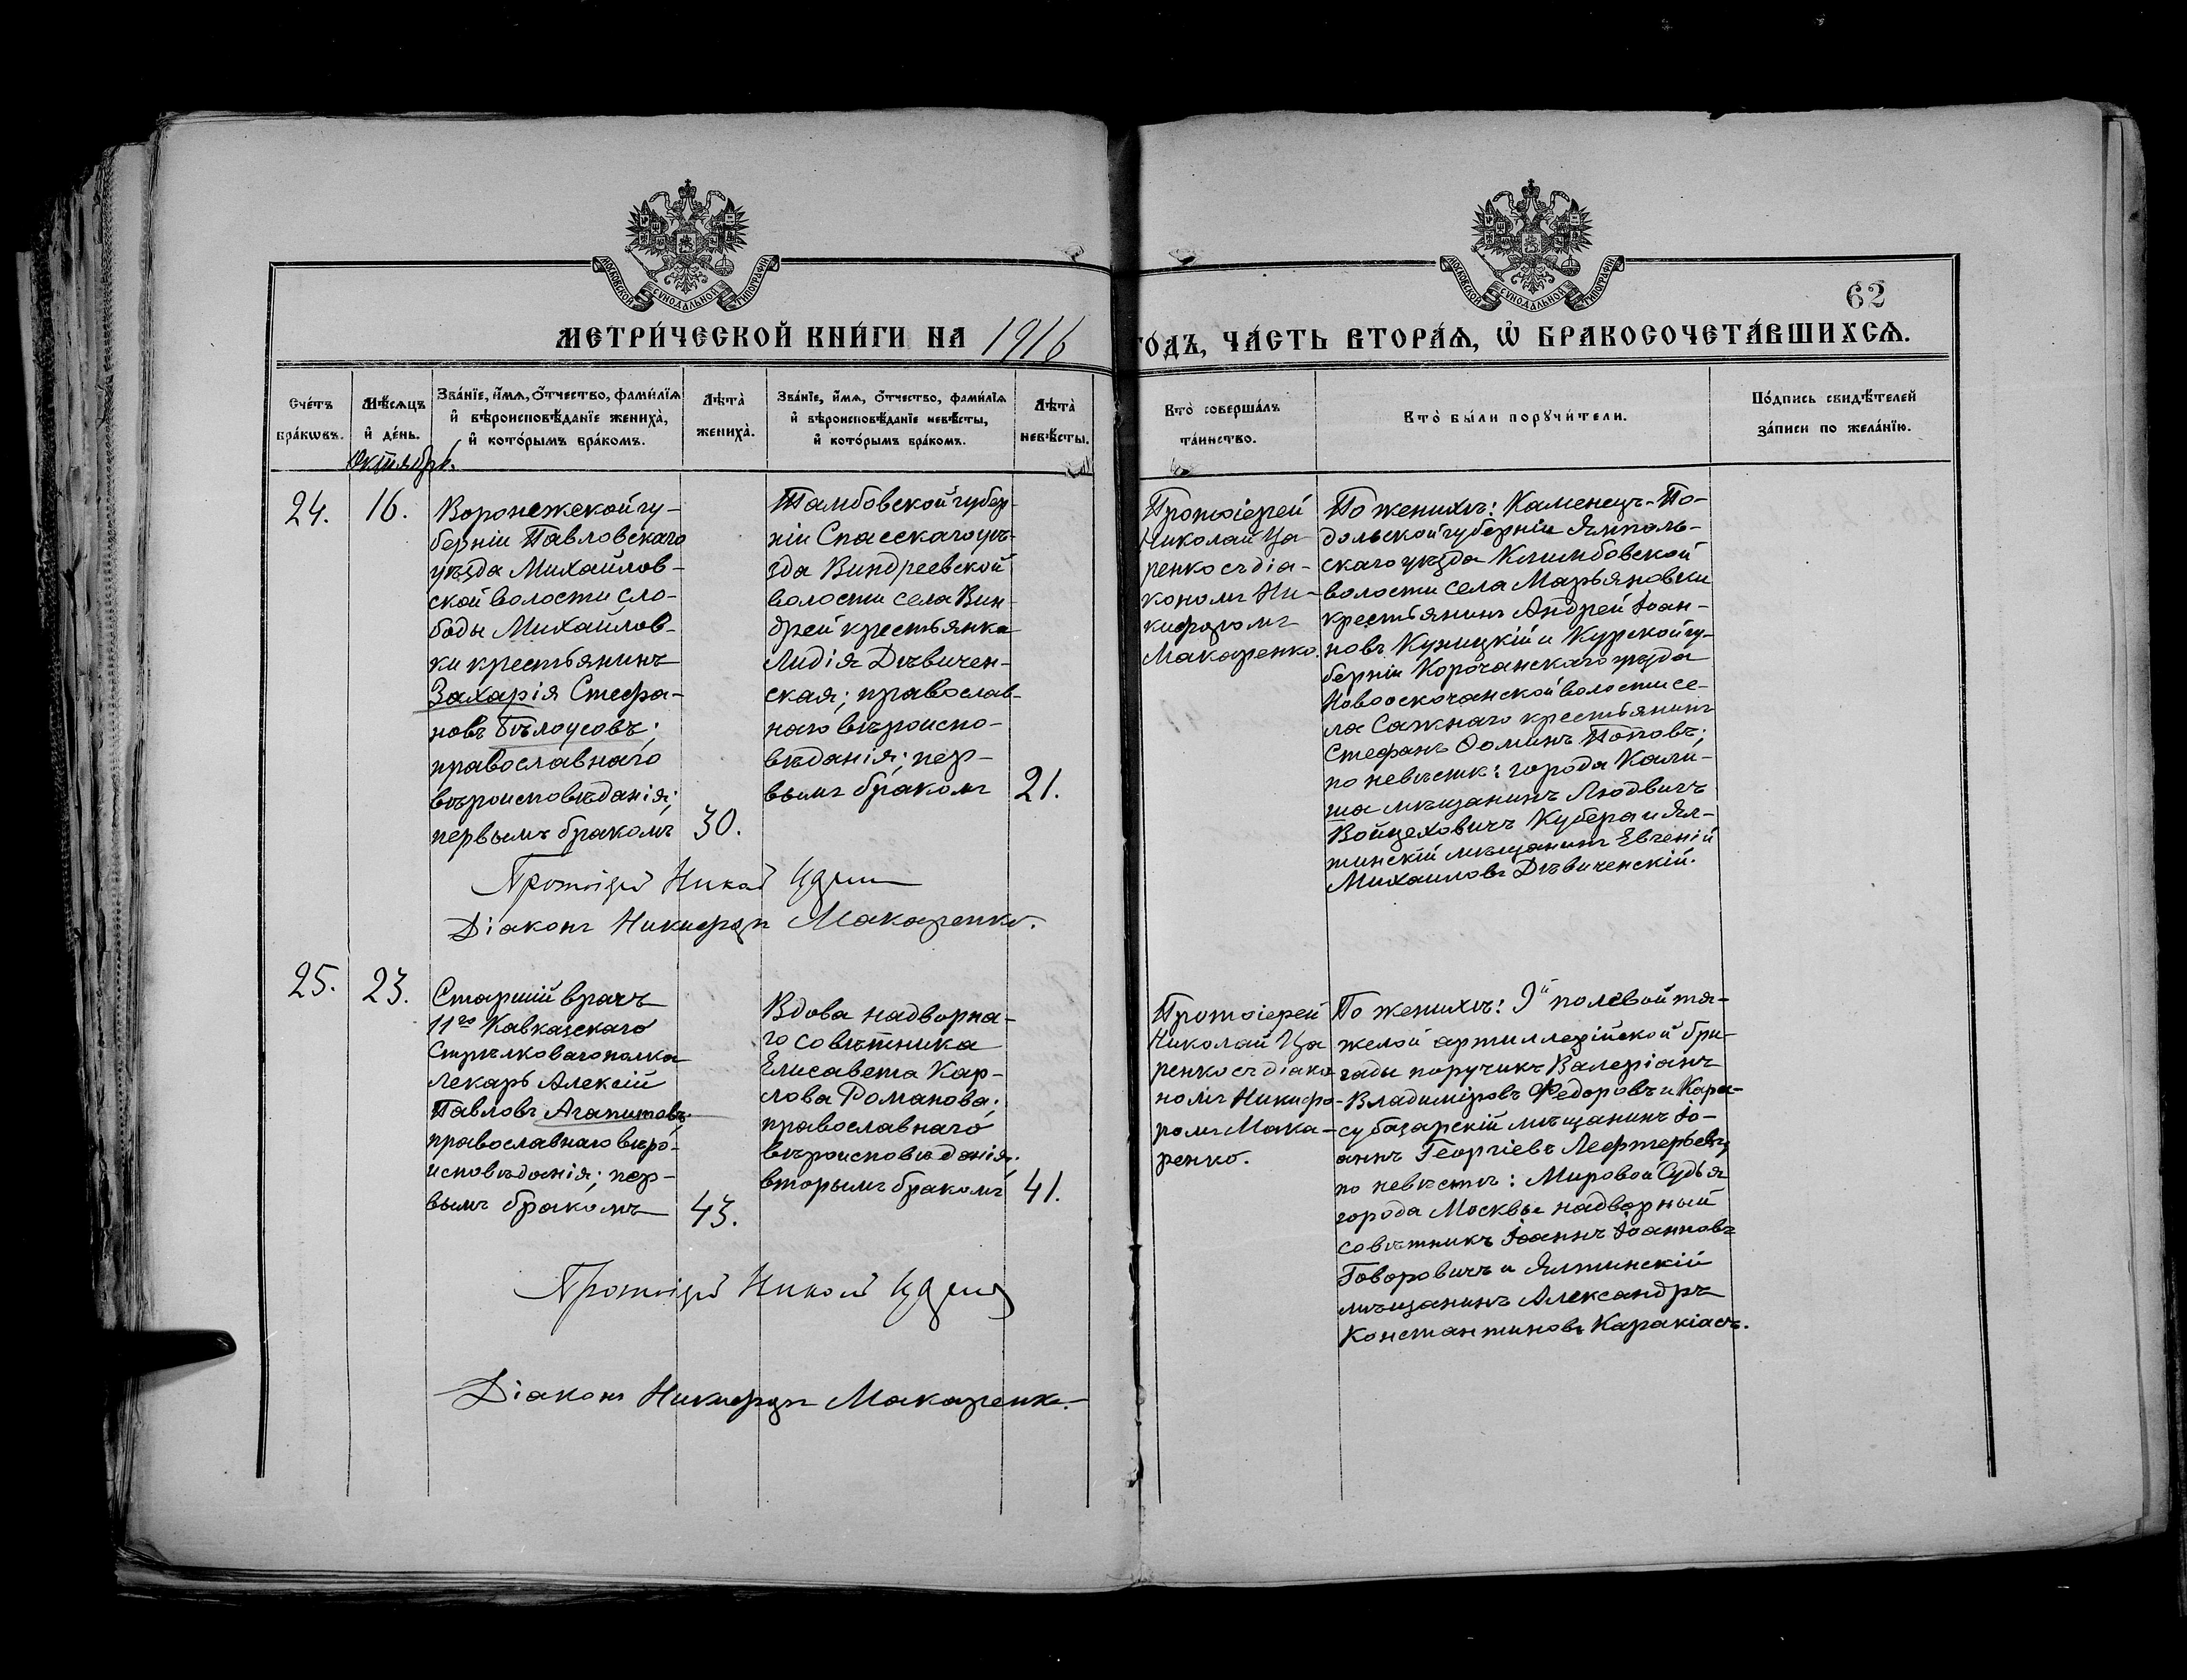 МОСКОВСКОЙ СѴНОДАЛЬНОЙ ТИПОГРАФІИ
МОСКОВСКОЙ СѴНОДАЛЬНОЙ ТИПОГРАФІИ
62
МЕТРИ́ЧЕСКОЙ КНИ́ГИ НА 1916
ГО́ДЪ, ЧА́СТЬ ВТОРА́Ѧ, Ѡ҆ БРАКОСОЧЕТА́ВШИХСѦ.
Сче́тъ
бра́кѡвъ.
Мѣ́сѧцъ
и҆ де́нь.
Зва́нїе, и҆́мѧ, ѻ҆́тчество, фами́лїѧ
и҆ вѣроисповѣ́данїе жениха̀,
и҆ кото́рымъ бра́комъ.
Лѣ́та̀
жениха̀.
Зва́нїе, и҆́мѧ, ѻ҆́тчество, фами́лїѧ
и҆ вѣроисповѣ́данїе невѣ́сты,
и҆ кото́рымъ бра́комъ.
Лѣ́та̀
невѣ́сты.
Кто̀ соверша́лъ
та́инство.
Кто̀ бы́ли порꙋчи́тели.
По́дпись свидѣ́телей
за́писи по жела́нїю.
Октябрь.
24.
16.
Воронежской гу-
берніи Павловскаго
уѣзда Михайлов-
ской волости сло-
боды Михайлов-
ки крестьянинъ
Захарія Стефа-
новъ Бѣлоусовъ;
православнаго
вѣроисповѣданія;
первымъ бракомъ
30.
Тамбовской губер-
ніи Спасскаго уѣ-
зда Виндреевской
волости села Вин-
дрей крестьянка
Лидія Дѣвичен-
ская; православ-
наго вѣроиспо-
вѣданія; пер-
вымъ бракомъ
21.
Протоіерей
Николай Ца
ренко съ діа-
кономъ Ни-
кифоромъ
Макаренко.
По женихѣ: Каменецъ-По-
дольской губерніи Ямполь-
скаго уѣзда Климбовской
волости села Марьяновки
крестьянинъ Андрей Іоан-
новъ Куницкій и Курской гу-
берніи Корочанскаго уѣзда
Новооскочанской волости се-
ла Сажнаго крестьянинъ
Стефанъ Ѳоминъ Поповъ;
по невѣстѣ: города Кали-
ша мѣщанинъ Людвигъ
Войцеховичъ Кубера и Ял-
тинскій мѣщанинъ Евгеній
Михаиловъ Дѣвиченскій.
Протоіерей Николай
Діаконъ Никифоръ Макаренко.
25.
23.
Старшій врачъ
11го Кавказскаго
Стрѣлковаго полка
Лекарь Алексій
Павловъ Агапитовъ;
православнаго вѣро-
исповѣданія; пер-
вымъ бракомъ
43.
Вдова надворна-
го совѣтника
Елисавета Кар-
лова Романова;
православнаго
вѣроисповѣданія;
вторымъ бракомъ
41.
Протоіерей
Николай Ца
ренко съ діако
номъ Никифо-
ромъ Мака-
ренко.
По женихѣ: 9й полевой тя-
желой артиллерійской бри-
гады поручикъ Валеріанъ
Владиміровъ Федоровъ и Кара-
субазарскій мѣщанинъ Іо-
аннъ Георгіевъ Лефтерьевъ;
по невѣстѣ: Мировой Судья
города Москвы надворный
совѣтникъ Іоаннъ Іоанновъ
Говоровичъ и Ялтинскій
мѣщанинъ Александръ
Константиновъ Каракіасъ.
Протоіерей Николай
Діаконъ Никифоръ Макаренко.